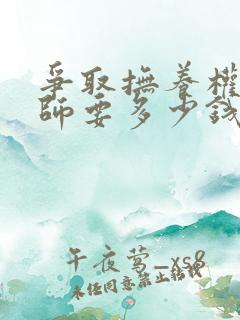 爭取撫養權
師要多少錢
午夜莺_xs8
未经同意禁止转载